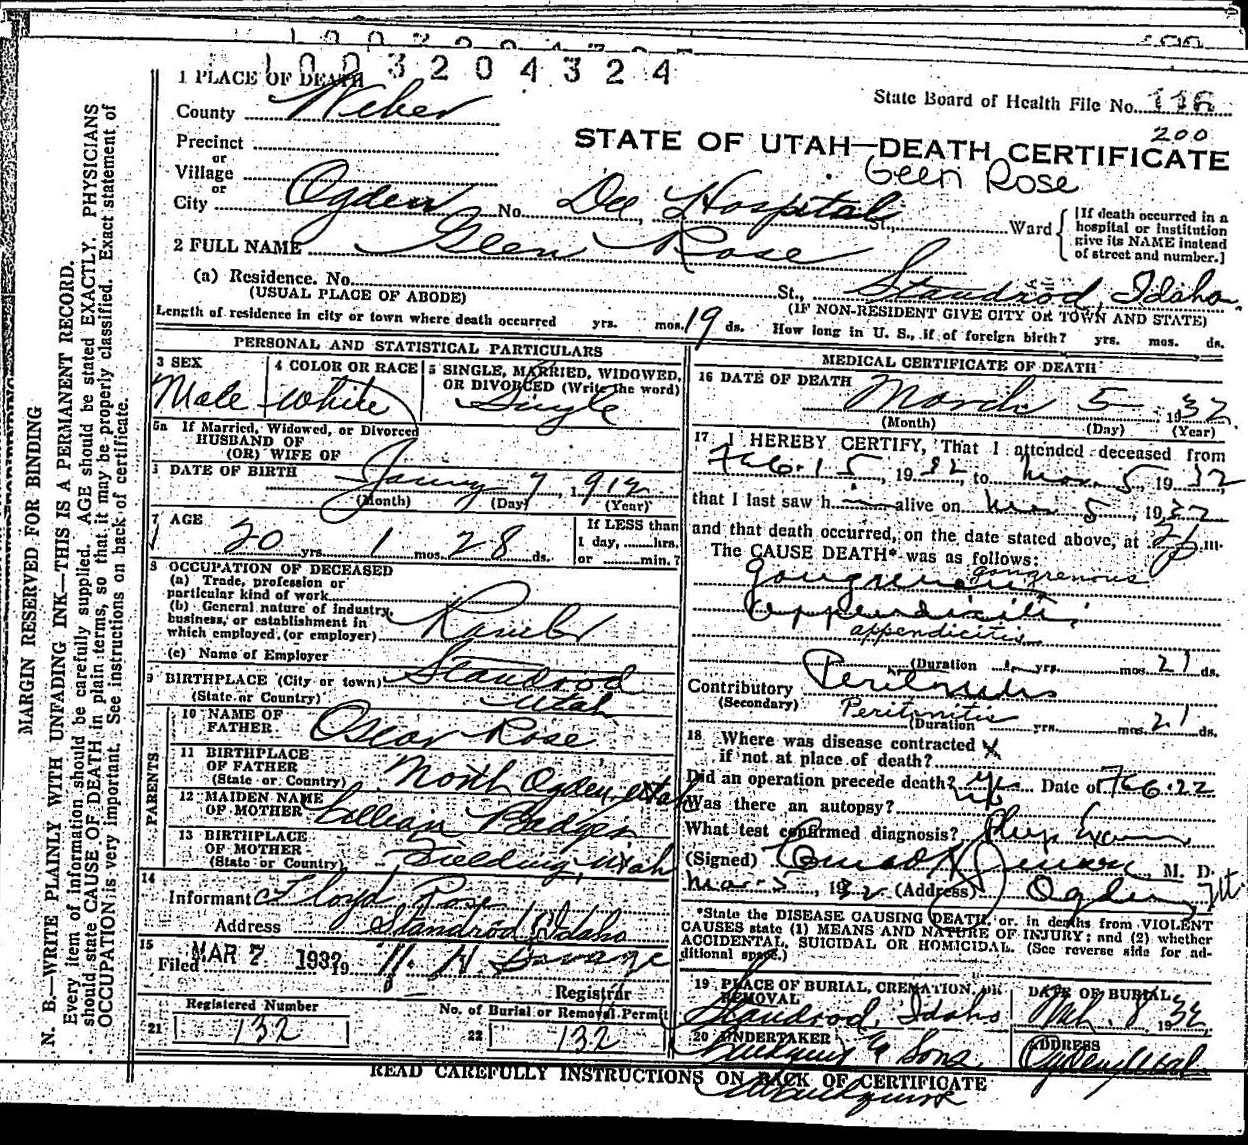 1003204324
1 PLACE OF DEATH
County Weber
State Board of Health File No. 116
200
Precinct
or
STATE OF UTAH—DEATH CERTIFICATE
Village
Geen Rose
or
City Ogden No. Dee Hospital St., Ward
[If death occurred in a hospital or institution give its NAME instead of street and number.]
2 FULL NAME Geen Rose
(a) Residence. No. St., Standrod, Idaho
(USUAL PLACE OF ABODE) (IF NON-RESIDENT GIVE CITY OR TOWN AND STATE)
Length of residence in city or town where death occurred yrs. mos. 19 ds. How long in U. S., if of foreign birth? yrs. mos. ds.
PERSONAL AND STATISTICAL PARTICULARS
3 SEX
Male
4 COLOR OR RACE
White
5 SINGLE, MARRIED, WIDOWED,
OR DIVORCED (Write the word)
Single
5a If Married, Widowed, or Divorced
HUSBAND OF
(OR) WIFE OF
DATE OF BIRTH
7 1912
(Month) (Day) (Year)
7 AGE
20 yrs. 1 mos. 28 ds.
If LESS than
1 day, hrs.
or min.?
8 OCCUPATION OF DECEASED
(a) Trade, profession or
particular kind of work
(b) General nature of industry,
business, or establishment in
which employed (or employer)
(c) Name of Employer
9 BIRTHPLACE (City or town) Standrod
(State or Country) Utah
PARENTS
10 NAME OF
FATHER Oscar Rose
11 BIRTHPLACE
OF FATHER
(State or Country) North Ogden, Utah
12 MAIDEN NAME
OF MOTHER
13 BIRTHPLACE
OF MOTHER
(State or Country) Fielding, Utah
14
Informant Lloyd Rose
Address Standrod, Idaho
15
Filed MAR 7 1932 19 Savage
Registrar
Registered Number
21 132
No. of Burial or Removal Permit
22 132
MEDICAL CERTIFICATE OF DEATH
16 DATE OF DEATH
March 5 1932
(Month) (Day) (Year)
17 I HEREBY CERTIFY, That I attended deceased from
Feb. 15, 1932, to Mar. 5, 1932
that I last saw him alive on Mar 5, 1932
and that death occurred, on the date stated above, at p.m.
The CAUSE DEATH* was as follows:
gangrenous
appendicitis
appendicitis
(Duration yrs. mos. 21 ds.
Contributory Peritonitis
(Secondary) Peritonitis
(Duration yrs. mos. 21 ds.
18 Where was disease contracted
if not at place of death? X
Did an operation precede death? yes Date of Feb. 22
Was there an autopsy? no
What test confirmed diagnosis? Phys Exam
(Signed) M. D.
Mar 5, 1932 (Address) Ogden, Ut.
*State the DISEASE CAUSING DEATH, or, in deaths from VIOLENT
CAUSES state (1) MEANS AND NATURE OF INJURY; and (2) whether
ACCIDENTAL, SUICIDAL OR HOMICIDAL. (See reverse side for ad-
ditional space.)
19 PLACE OF BURIAL, CREMATION, OR
REMOVAL
Standrod, Idaho
DATE OF BURIAL
Mch. 8 1932
20 UNDERTAKER
& Sons
ADDRESS
Ogden, Utah
READ CAREFULLY INSTRUCTIONS ON BACK OF CERTIFICATE
MARGIN RESERVED FOR BINDING
N. B.—WRITE PLAINLY WITH UNFADING INK—THIS IS A PERMANENT RECORD.
Every item of information should be carefully supplied. AGE should be stated EXACTLY. PHYSICIANS
should state CAUSE OF DEATH in plain terms, so that it may be properly classified. Exact statement of
OCCUPATION is very important. See instructions on back of certificate.